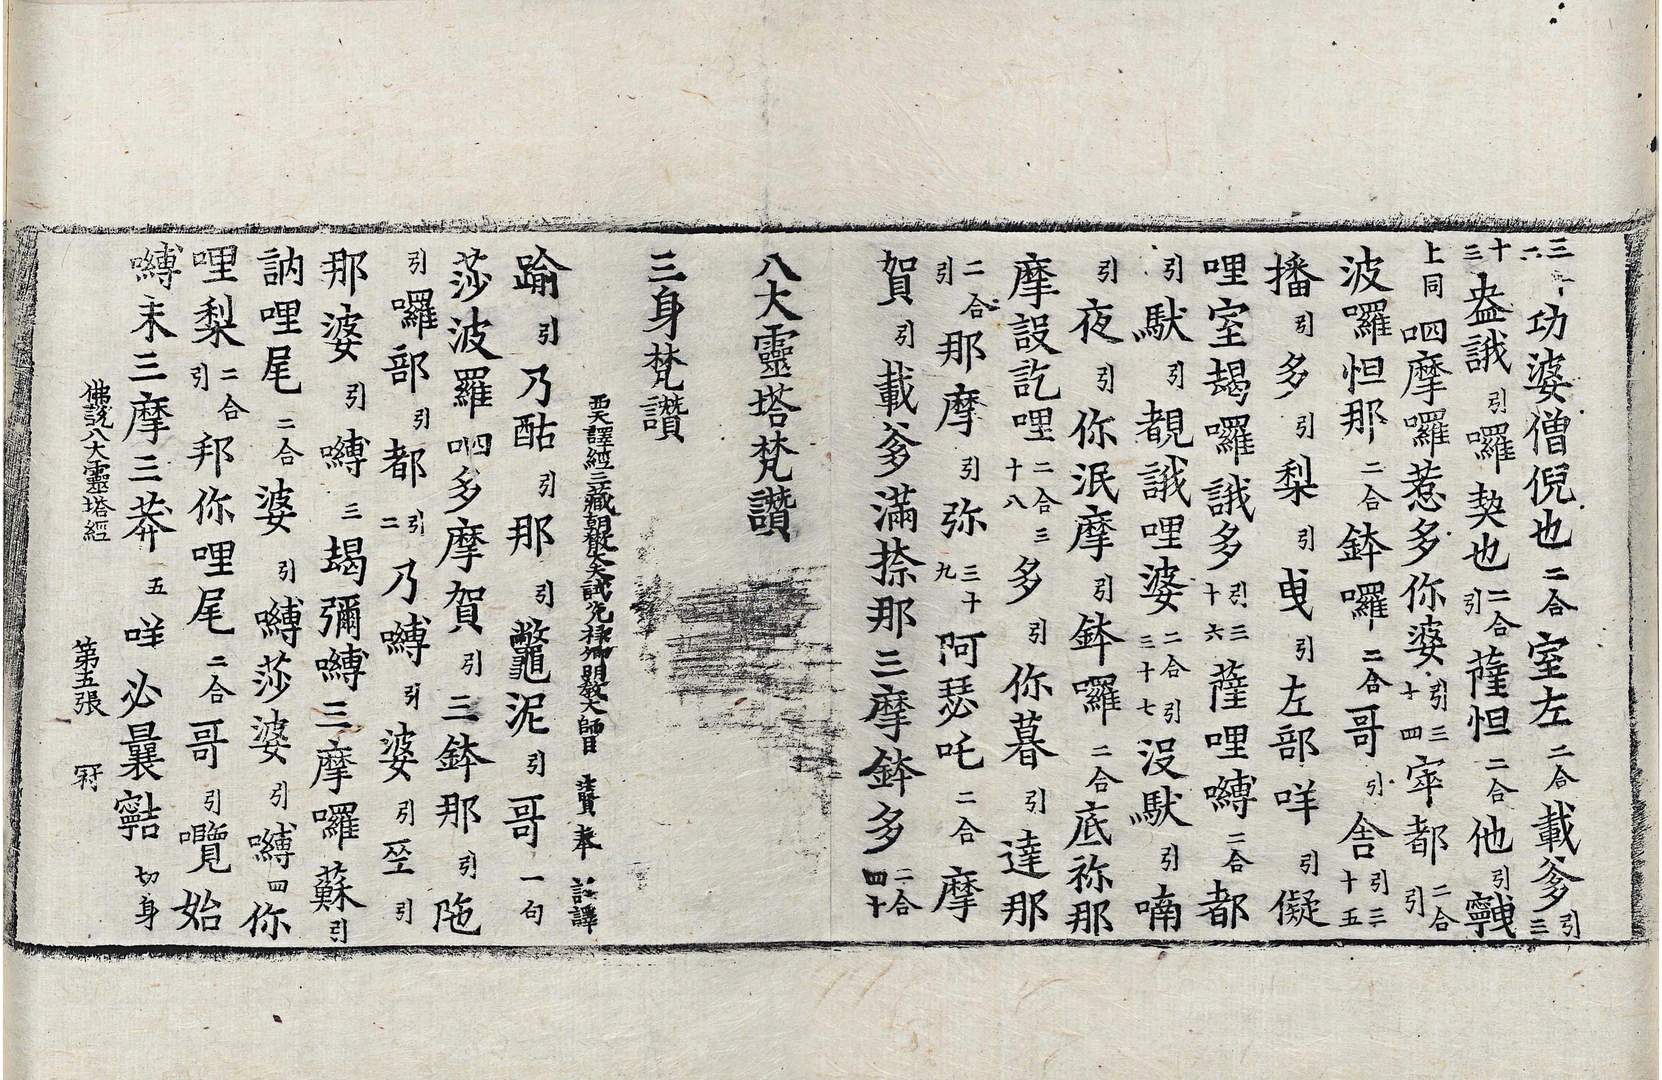 三二功婆僧倪也二合室左二合載爹引三
十三盎誐引囉契也二合引薩怛二合他引𩕳
上同呬摩囉惹多你婆引三十四宰都二合引
波囉怛那二合鉢囉二合哥引舍引三十五
播引多引梨引曳引左部咩引儗
哩室朅囉誐多引三十六薩哩嚩二合都
引馱引覩誐哩婆二合引三十七沒馱引喃
引夜引你泯摩引鉢囉二合底祢那
摩設訖哩二合三十八多引你暮引達那
二合引那摩引弥三十九阿瑟吒二合摩
賀引載爹滿捺那三摩鉢多二合四十
八大靈塔梵讚
三身梵讚
西天譯經三藏朝散大夫試光祿卿明教大師臣法賢奉詔譯
踰引乃酤引那引鼈泥引哥一句
莎波羅呬多摩賀引三鉢那引陁
引囉部引都引二乃嚩引婆引㘴引
那婆引嚩三朅彌嚩三摩囉蘇引
訥哩尾二合婆引嚩莎婆引嚩四你
哩梨二合引邦你哩尾二合哥引囕始
嚩末三摩三莽五咩必曩𩕳切身
佛說八大靈塔經　第五張　㝋